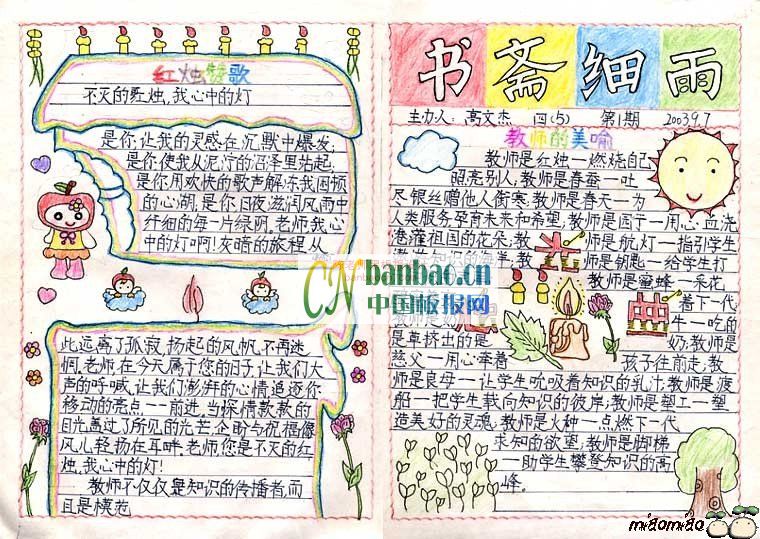 红烛赞歌
不灭的红烛,我心中的灯
是你,让我的灵感在沉默中爆发;
是你使我从泥泞的沼泽里站起;
是你用欢快的歌声解冻我困顿
的心湖,是你日夜滋润风雨中
纤细的每一片绿阴,老师,我心
中的灯啊!灰暗的旅程,从
此远离了孤寂,扬起的风帆,不再迷
惘,老师,在今天属于您的日子,让我们大
声的呼喊,让我们澎湃的心情追逐你
移动的亮点一一前进,当深情款款的
目光,高过了所见的光芒,企盼与祝福像
风儿,轻扬在耳畔,老师,您是不灭的红
烛,我心中的灯!
教师不仅仅是知识的传播者,而
且是模范
书斋细雨
主办人:高文杰 四(5) 第1期 2003.9.7
教师的美喻
教师是红烛一燃烧自己
照亮别人;教师是春蚕一吐
尽银丝赠他人御寒;教师是春天一为
人类服务,孕育未来和希望,教师是园丁一用心血浇
灌祖国的花朵;教师是航灯一指引学生
师是钥匙一给学生打
教师是蜜蜂一采花
着下一代;
牛一吃的
是草挤出的是奶;教师是
慈父一用心牵着孩子往前走,教
师是良母一让学生吮吸着知识的乳汁,教师是渡
船一把学生载向知识的彼岸;教师是塑工一塑
造美好的灵魂;教师是火种一点燃下一代
求知的欲望;教师是脚梯
一助学生攀登知识的高
峰。
banbao.cn
中国板报网
miaomiao